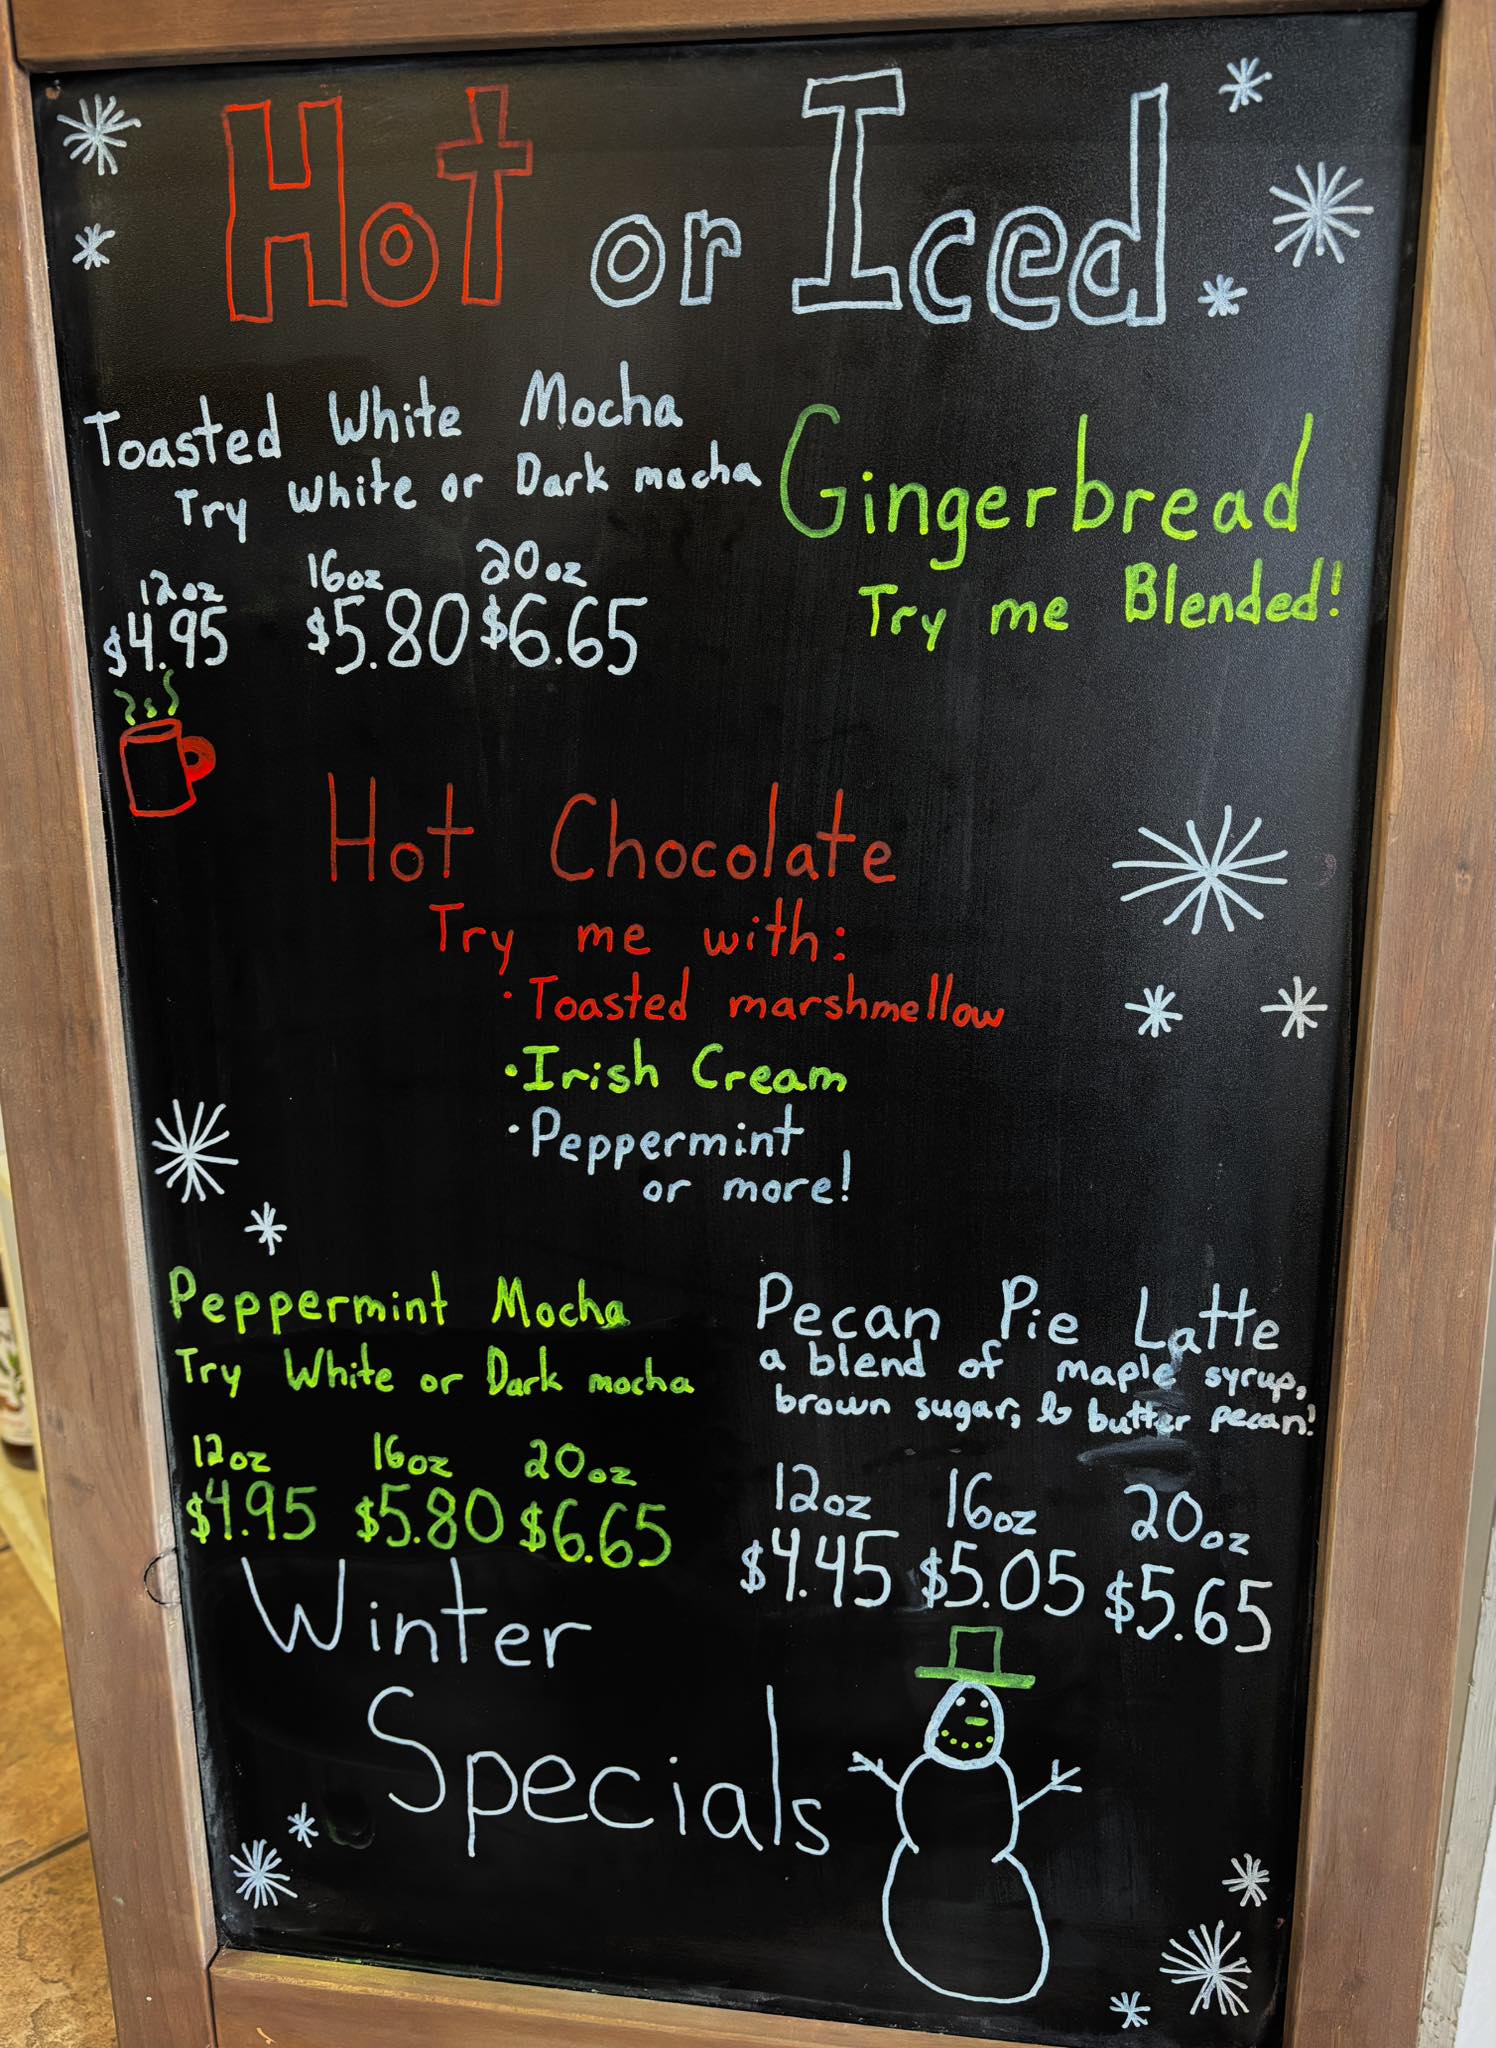 Hot or Iced
Toasted White Mocha
Try White or Dark mocha
12oz 16oz 20oz
$4.95 $5.80 $6.65
Gingerbread
Try me Blended!
Hot Chocolate
Try me with:
· Toasted marshmellow
· Irish Cream
· Peppermint
or more!
Peppermint Mocha
Try White or Dark mocha
12oz 16oz 20oz
$4.95 $5.80 $6.65
Pecan Pie Latte
a blend of maple syrup,
brown sugar, & butter pecan!
12oz 16oz 20oz
$4.45 $5.05 $5.65
Winter
Specials